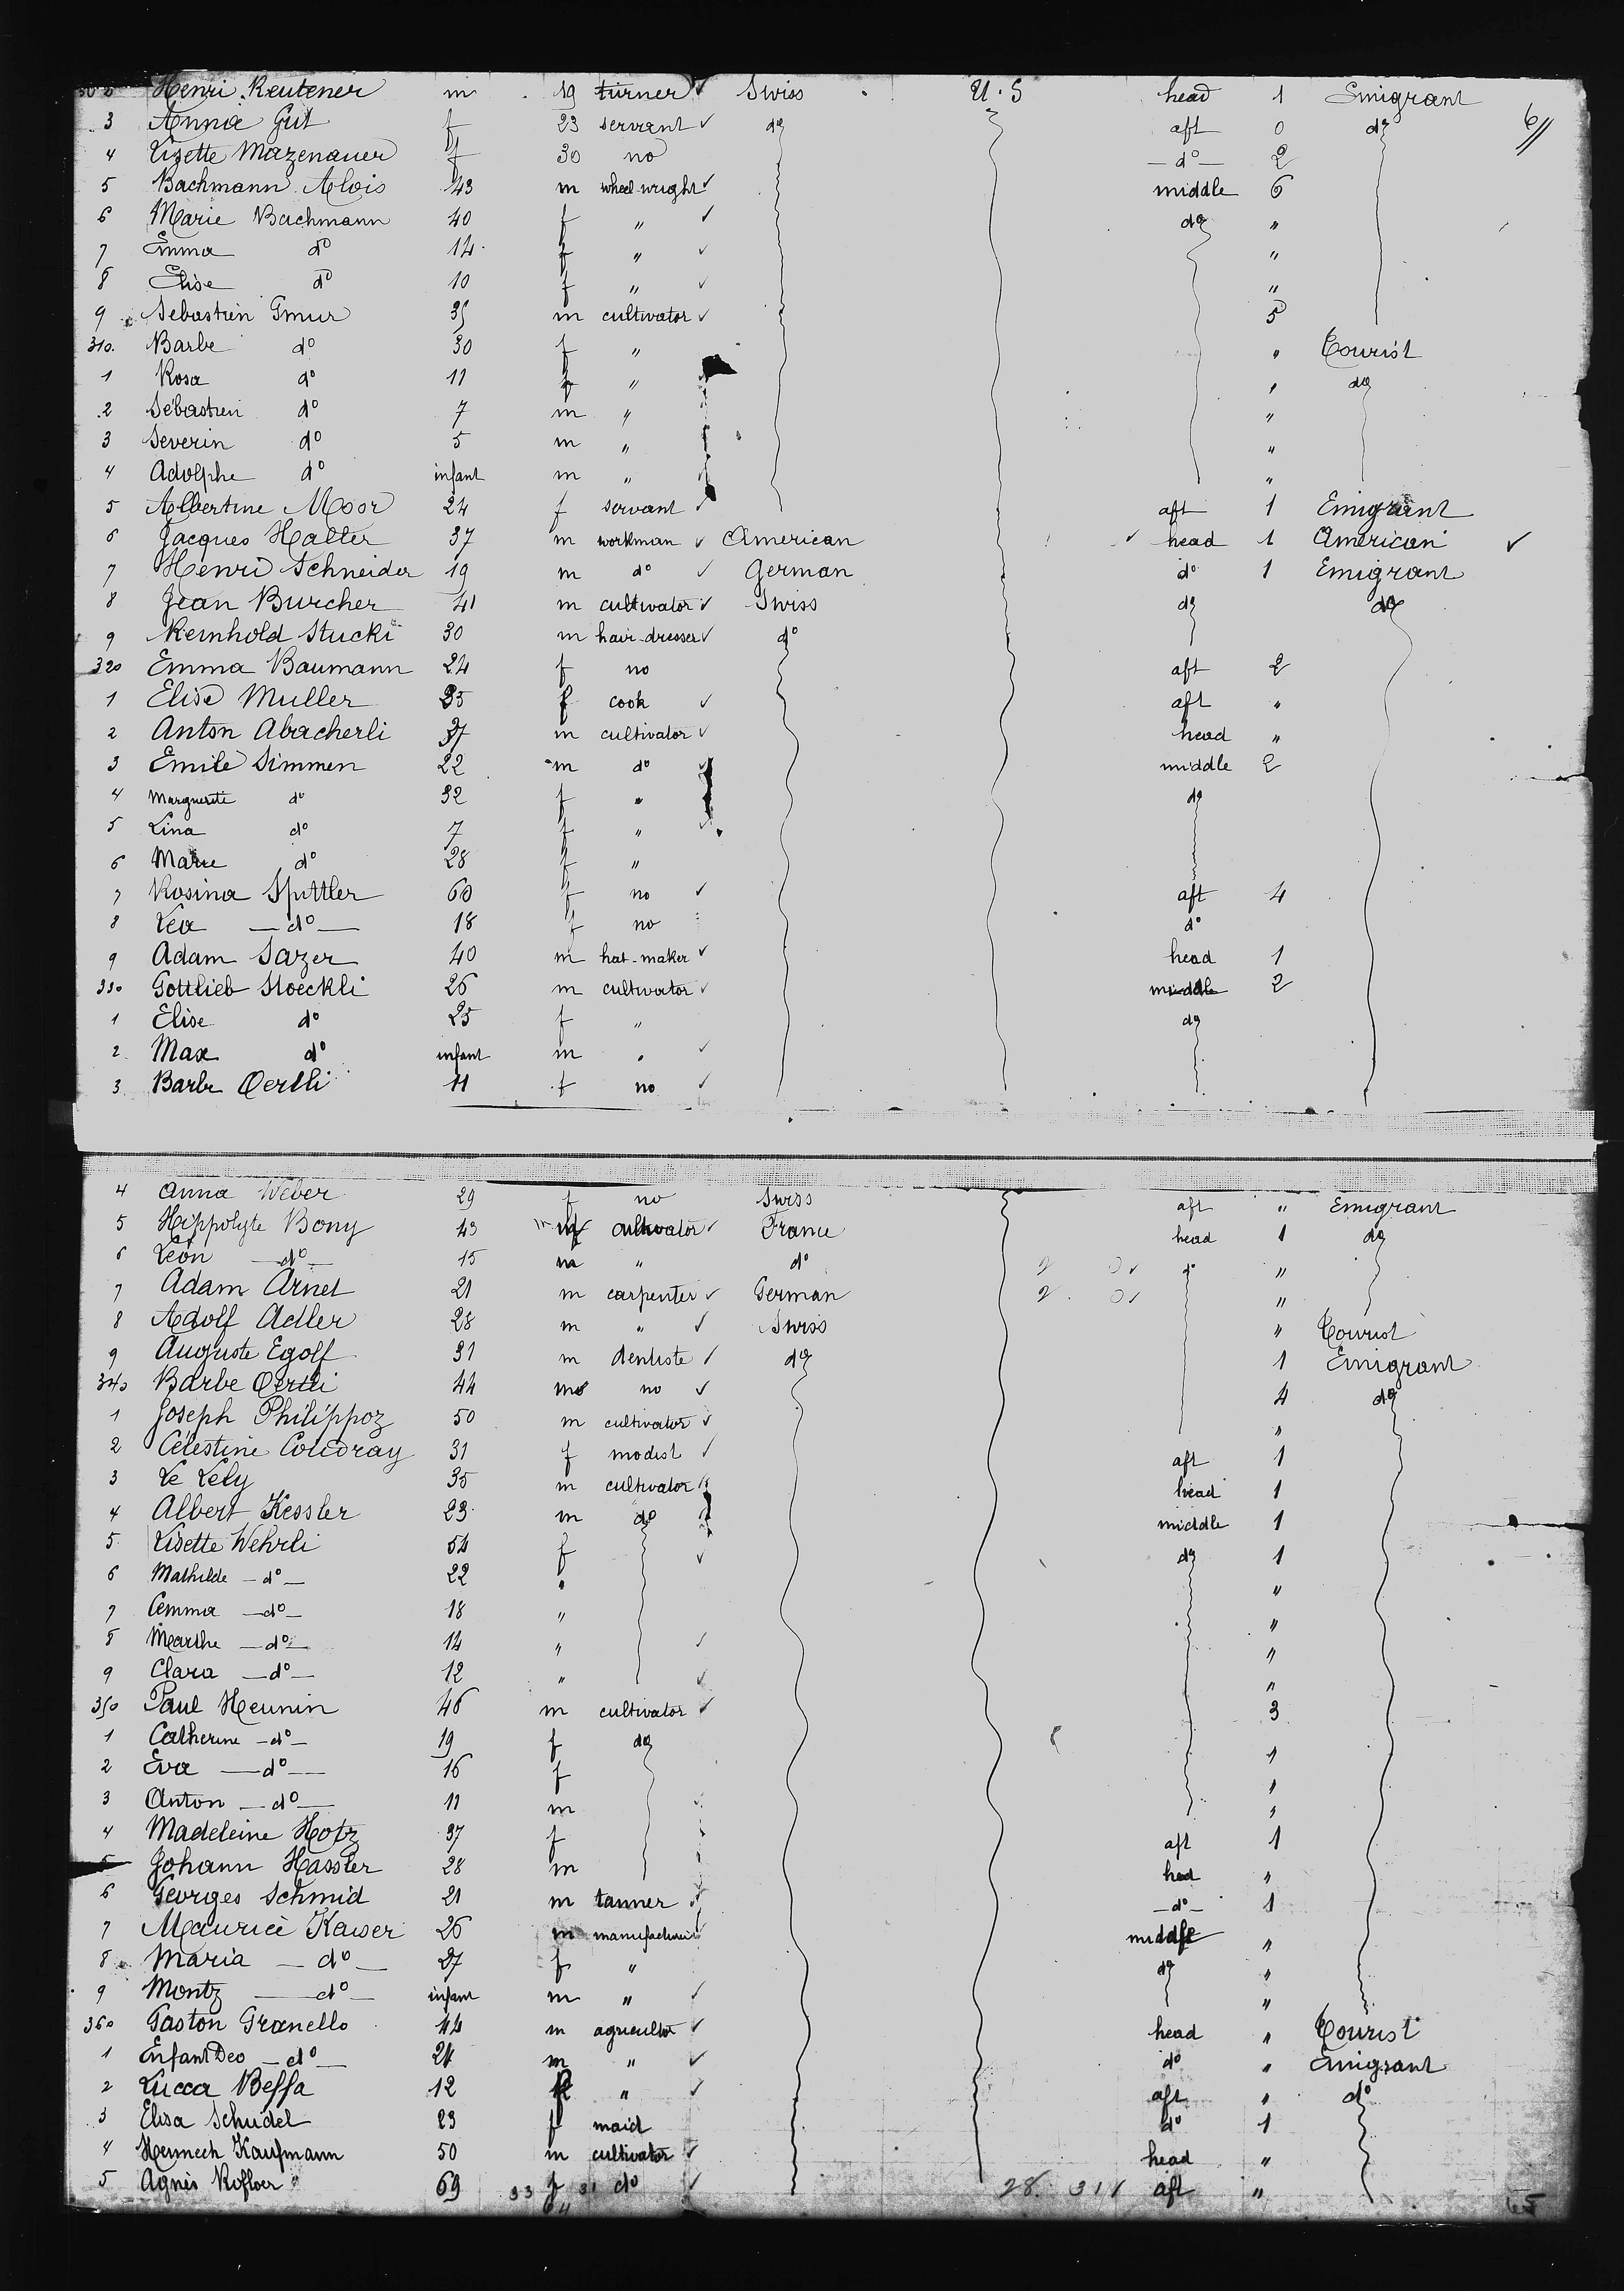 302 Henri Reutener m 19 turner ✓ Swiss U.S head 1 Emigrant
3 Anna Gut f 23 servant ✓ do aft 0 do 6//
4 Lisette Mazenauer f 30 no — do — 2
5 Bachmann Alois 43 m wheel-wright ✓ middle 6
6 Marie Bachmann 40 f " ✓ do "
7 Emma do 14 f " ✓ "
8 Elise do 10 f " ✓ "
9 Sebastien Gmur 35 m cultivator ✓ 5
310. Barbe do 30 f " " Tourist
1 Rosa do 11 f " " do
2 Sébastien do 7 m " "
3 Severin do 5 m " "
4 Adolphe do infant m " "
5 Albertine Moor 24 f servant ✓ aft 1 Emigrant
6 Jacques Halter 37 m workman ✓ American ✓ head 1 American ✓
7 Henri Schneider 19 m do ✓ German do 1 Emigrant
8 Jean Burcher 41 m cultivator ✓ Swiss do do
9 Reinhold Stucki 30 m hair-dresser ✓ do
320 Emma Baumann 24 f no aft 2
1 Elise Muller 35 f cook ✓ aft "
2 Anton Abacherli 37 m cultivator ✓ head "
3 Emile Simmen 22 m do ✓ middle 2
4 Marguerite do 32 f " do
5 Lina do 7 f "
6 Marie do 28 f "
7 Rosina Spittler 60 f no ✓ aft 4
8 Lea — do — 18 f no do
9 Adam Sazer 40 m hat-maker ✓ head 1
330 Gottlieb Stoeckli 26 m cultivator ✓ middle 2
1 Elise do 25 f " do
2 Max do infant m " ✓
3 Barbe Oertli 11 f no ✓
4 Anna Weber 29 f no Swiss aft " Emigrant
5 Hippolyte Bony 43 m cultivator ✓ France head 1 do
6 Léon — do — 15 m " do do "
7 Adam Arnet 21 m carpenter ✓ German "
8 Adolf Adler 28 m " ✓ Swiss " Tourist
9 Auguste Egolf 31 m dentiste ✓ do 1 Emigrant
340 Barbe Oertli 44 no ✓ 4 do
1 Joseph Philippoz 50 m cultivator ✓ "
2 Célestine Coudray 31 f modist ✓ aft 1
3 Le Lely 35 m cultivator head 1
4 Albert Kessler 23 m do middle 1
5 Lisette Wehrli 54 f ✓ do 1
6 Mathilde — do — 22 " "
7 Emma — do — 18 " "
8 Marthe — do — 14 " ✓ "
9 Clara — do — 12 " ✓ "
350 Paul Heunin 46 m cultivator ✓ 3
1 Catherine — do — 19 f do 1
2 Eva — do — 16 f "
3 Anton — do — 11 m "
4 Madeleine Hotz 37 f aft 1
5 Johann Hassler 28 m head "
6 Georges Schmid 21 m tanner — do — 1
7 Maurice Kaiser 26 m middle "
8 Maria — do — 27 f " do "
9 Moritz — do — infant m " ✓ "
360 Gaston Granello 44 m agricultor ✓ head " Tourist
1 — do — 24 m " ✓ do " Emigrant
2 Lucca Beffa 12 " ✓ aft " do
3 Elisa Schudel 23 f maid do 1
4 Kaufmann 50 m cultivator ✓ head "
5 Agnes 69 33 f 31 do ✓ 28. 311 aft "